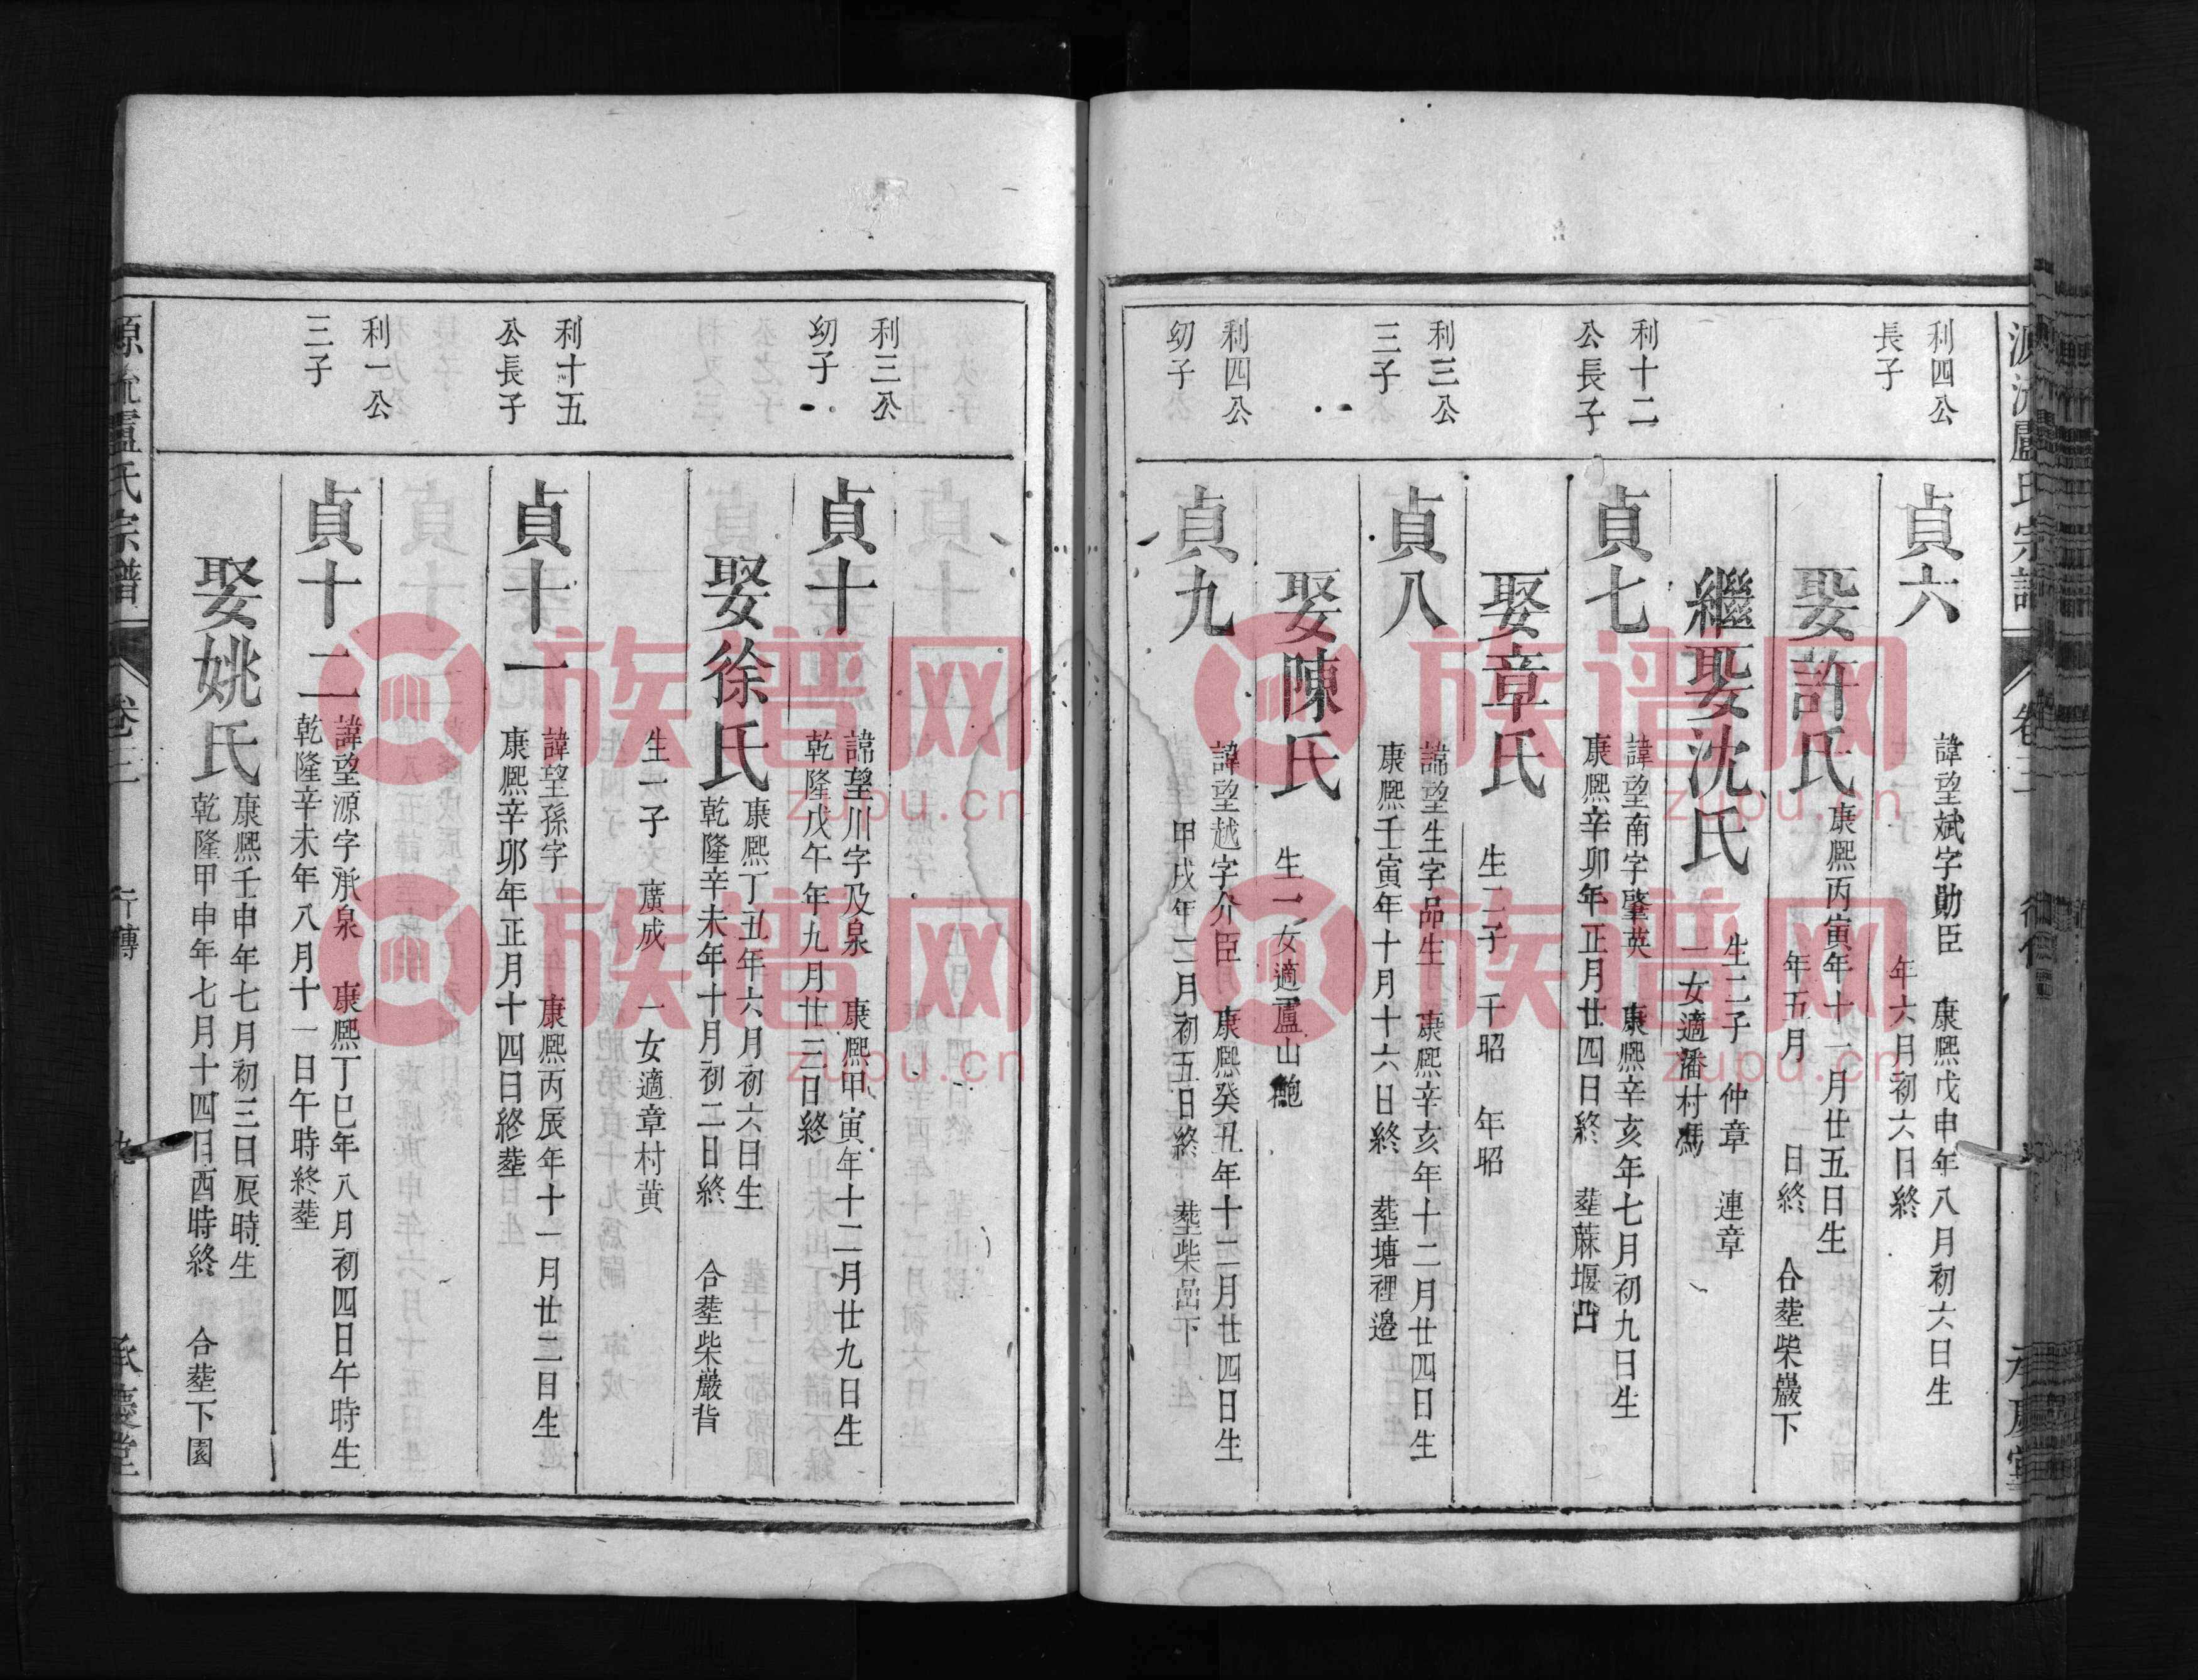 源流盧氏宗譜 卷三
利四公
長子
貞六
諱望斌字勛臣 康熙戊申年八月初六日生
年六月初六日終
娶許氏
康熙丙寅年十一月廿五日生
年五月 日終 合塟柴巖下
繼娶沈氏
生二子 仲章 連章
一女適潘村馮
利十二
公長子
貞七
諱望南字肇英 康熙辛亥年七月初九日生
康熙辛卯年正月廿四日終 塟蔴堰凸
娶章氏
生二子 千昭 年昭
利三公
三子
貞八
諱望生字品生 康熙辛亥年十二月廿四日生
康熙壬寅年十月十六日終 塟塘裡邉
娶陳氏
生一女適蘆山鮑
利四公
幼子
貞九
諱望越字介臣 康熙癸丑年十二月廿四日生
甲戌年二月初五日終 塟柴嵒下
利三公
幼子
貞十
諱望川字及泉 康熙甲寅年十二月廿九日生
乾隆戊午年九月廿三日終
娶徐氏
康熙丁丑年六月初六日生
乾隆辛未年十月初二日終 合塟柴巖背
生一子 廣成 一女適章村黄
利十五
公長子
貞十一
諱望孫字 康熙丙辰年十一月廿二日生
康熙辛卯年正月十四日終塟
利一公
三子
貞十二
諱望源字承泉 康熙丁巳年八月初四日午時生
乾隆辛未年八月十一日午時終塟
娶姚氏
康熙壬申年七月初三日辰時生
乾隆甲申年七月十四日酉時終 合塟下園
源流盧氏宗譜 卷三 行傳 九 承慶堂
族谱网
zupu.cn
族谱网
zupu.cn
族谱网
zupu.cn
族谱网
zupu.cn